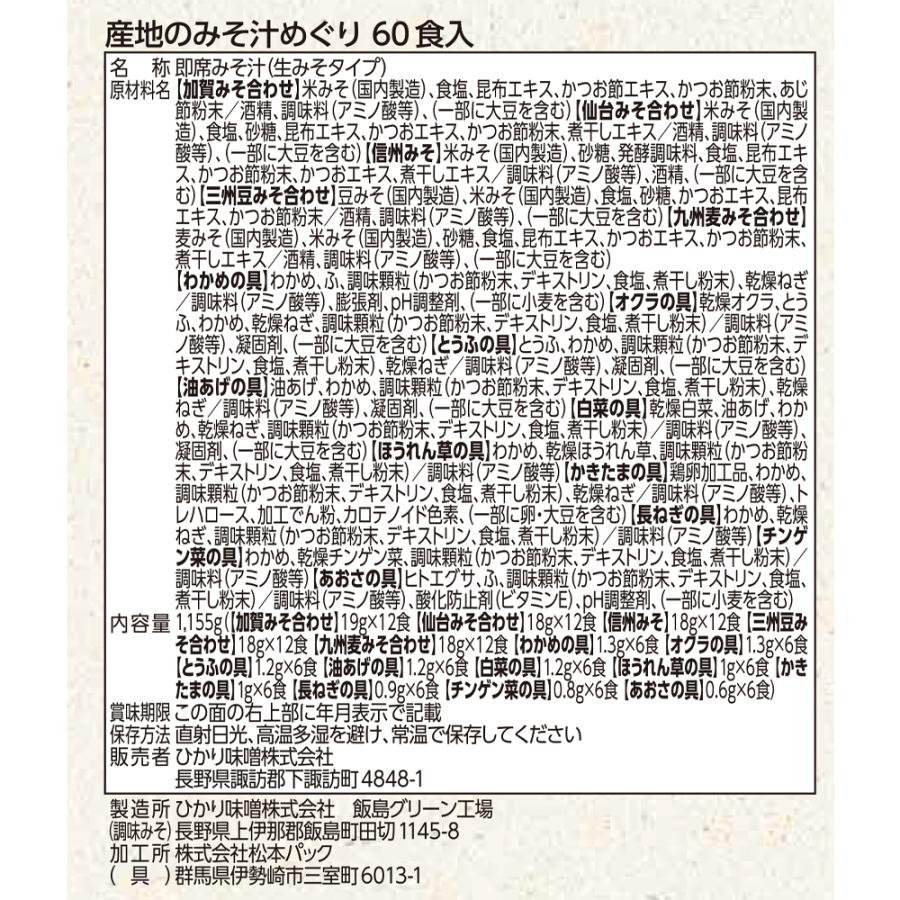 産地のみそ汁めぐり 60食入
名称 即席みそ汁(生みそタイプ)
原材料名 【加賀みそ合わせ】米みそ(国内製造)、食塩、昆布エキス、かつお節エキス、かつお節粉末、あじ
節粉末／酒精、調味料(アミノ酸等)、(一部に大豆を含む)【仙台みそ合わせ】米みそ(国内製
造)、食塩、砂糖、昆布エキス、かつおエキス、かつお節粉末、煮干しエキス／酒精、調味料(アミノ
酸等)、(一部に大豆を含む)【信州みそ】米みそ(国内製造)、砂糖、発酵調味料、食塩、昆布エキ
ス、かつお節粉末、かつおエキス、煮干しエキス／調味料(アミノ酸等)、酒精、(一部に大豆を含
む)【三州豆みそ合わせ】豆みそ(国内製造)、米みそ(国内製造)、食塩、砂糖、かつおエキス、昆布
エキス、かつお節粉末／酒精、調味料(アミノ酸等)、(一部に大豆を含む)【九州麦みそ合わせ】
麦みそ(国内製造)、米みそ(国内製造)、砂糖、食塩、昆布エキス、かつおエキス、かつお節粉末、
煮干しエキス／酒精、調味料(アミノ酸等)、(一部に大豆を含む)
【わかめの具】わかめ、ふ、調味顆粒(かつお節粉末、デキストリン、食塩、煮干し粉末)、乾燥ねぎ
／調味料(アミノ酸等)、膨張剤、pH調整剤、(一部に小麦を含む)【オクラの具】乾燥オクラ、とう
ふ、わかめ、乾燥ねぎ、調味顆粒(かつお節粉末、デキストリン、食塩、煮干し粉末)／調味料(アミ
ノ酸等)、凝固剤、(一部に大豆を含む)【とうふの具】とうふ、わかめ、調味顆粒(かつお節粉末、デ
キストリン、食塩、煮干し粉末)、乾燥ねぎ／調味料(アミノ酸等)、凝固剤、(一部に大豆を含む)
【油あげの具】油あげ、わかめ、調味顆粒(かつお節粉末、デキストリン、食塩、煮干し粉末)、乾燥
ねぎ／調味料(アミノ酸等)、凝固剤、(一部に大豆を含む)【白菜の具】乾燥白菜、油あげ、わか
め、乾燥ねぎ、調味顆粒(かつお節粉末、デキストリン、食塩、煮干し粉末)／調味料(アミノ酸等)、
凝固剤、(一部に大豆を含む)【ほうれん草の具】わかめ、乾燥ほうれん草、調味顆粒(かつお節粉
末、デキストリン、食塩、煮干し粉末)／調味料(アミノ酸等)【かきたまの具】鶏卵加工品、わかめ、
調味顆粒(かつお節粉末、デキストリン、食塩、煮干し粉末)、乾燥ねぎ／調味料(アミノ酸等)、ト
レハロース、加工でん粉、カロテノイド色素、(一部に卵・大豆を含む)【長ねぎの具】わかめ、乾燥
ねぎ、調味顆粒(かつお節粉末、デキストリン、食塩、煮干し粉末)／調味料(アミノ酸等)【チンゲ
ン菜の具】わかめ、乾燥チンゲン菜、調味顆粒(かつお節粉末、デキストリン、食塩、煮干し粉末)／
調味料(アミノ酸等)【あおさの具】ヒトエグサ、ふ、調味顆粒(かつお節粉末、デキストリン、食塩、
煮干し粉末)／調味料(アミノ酸等)、酸化防止剤(ビタミンE)、pH調整剤、(一部に小麦を含む)
内容量 1,155g(【加賀みそ合わせ】19g×12食【仙台みそ合わせ】18g×12食【信州みそ】18g×12食【三州豆み
そ合わせ】18g×12食【九州麦みそ合わせ】18g×12食【わかめの具】1.3g×6食【オクラの具】1.3g×6食
【とうふの具】1.2g×6食【油あげの具】1.2g×6食【白菜の具】1.2g×6食【ほうれん草の具】1g×6食【かき
たまの具】1g×6食【長ねぎの具】0.9g×6食【チンゲン菜の具】0.8g×6食【あおさの具】0.6g×6食)
賞味期限 この面の右上部に年月表示で記載
保存方法 直射日光、高温多湿を避け、常温で保存してください
販売者 ひかり味噌株式会社
長野県諏訪郡下諏訪町4848-1
製造所 ひかり味噌株式会社 飯島グリーン工場
(調味みそ) 長野県上伊那郡飯島町田切1145-8
加工所 株式会社松本パック
(具) 群馬県伊勢崎市三室町6013-1